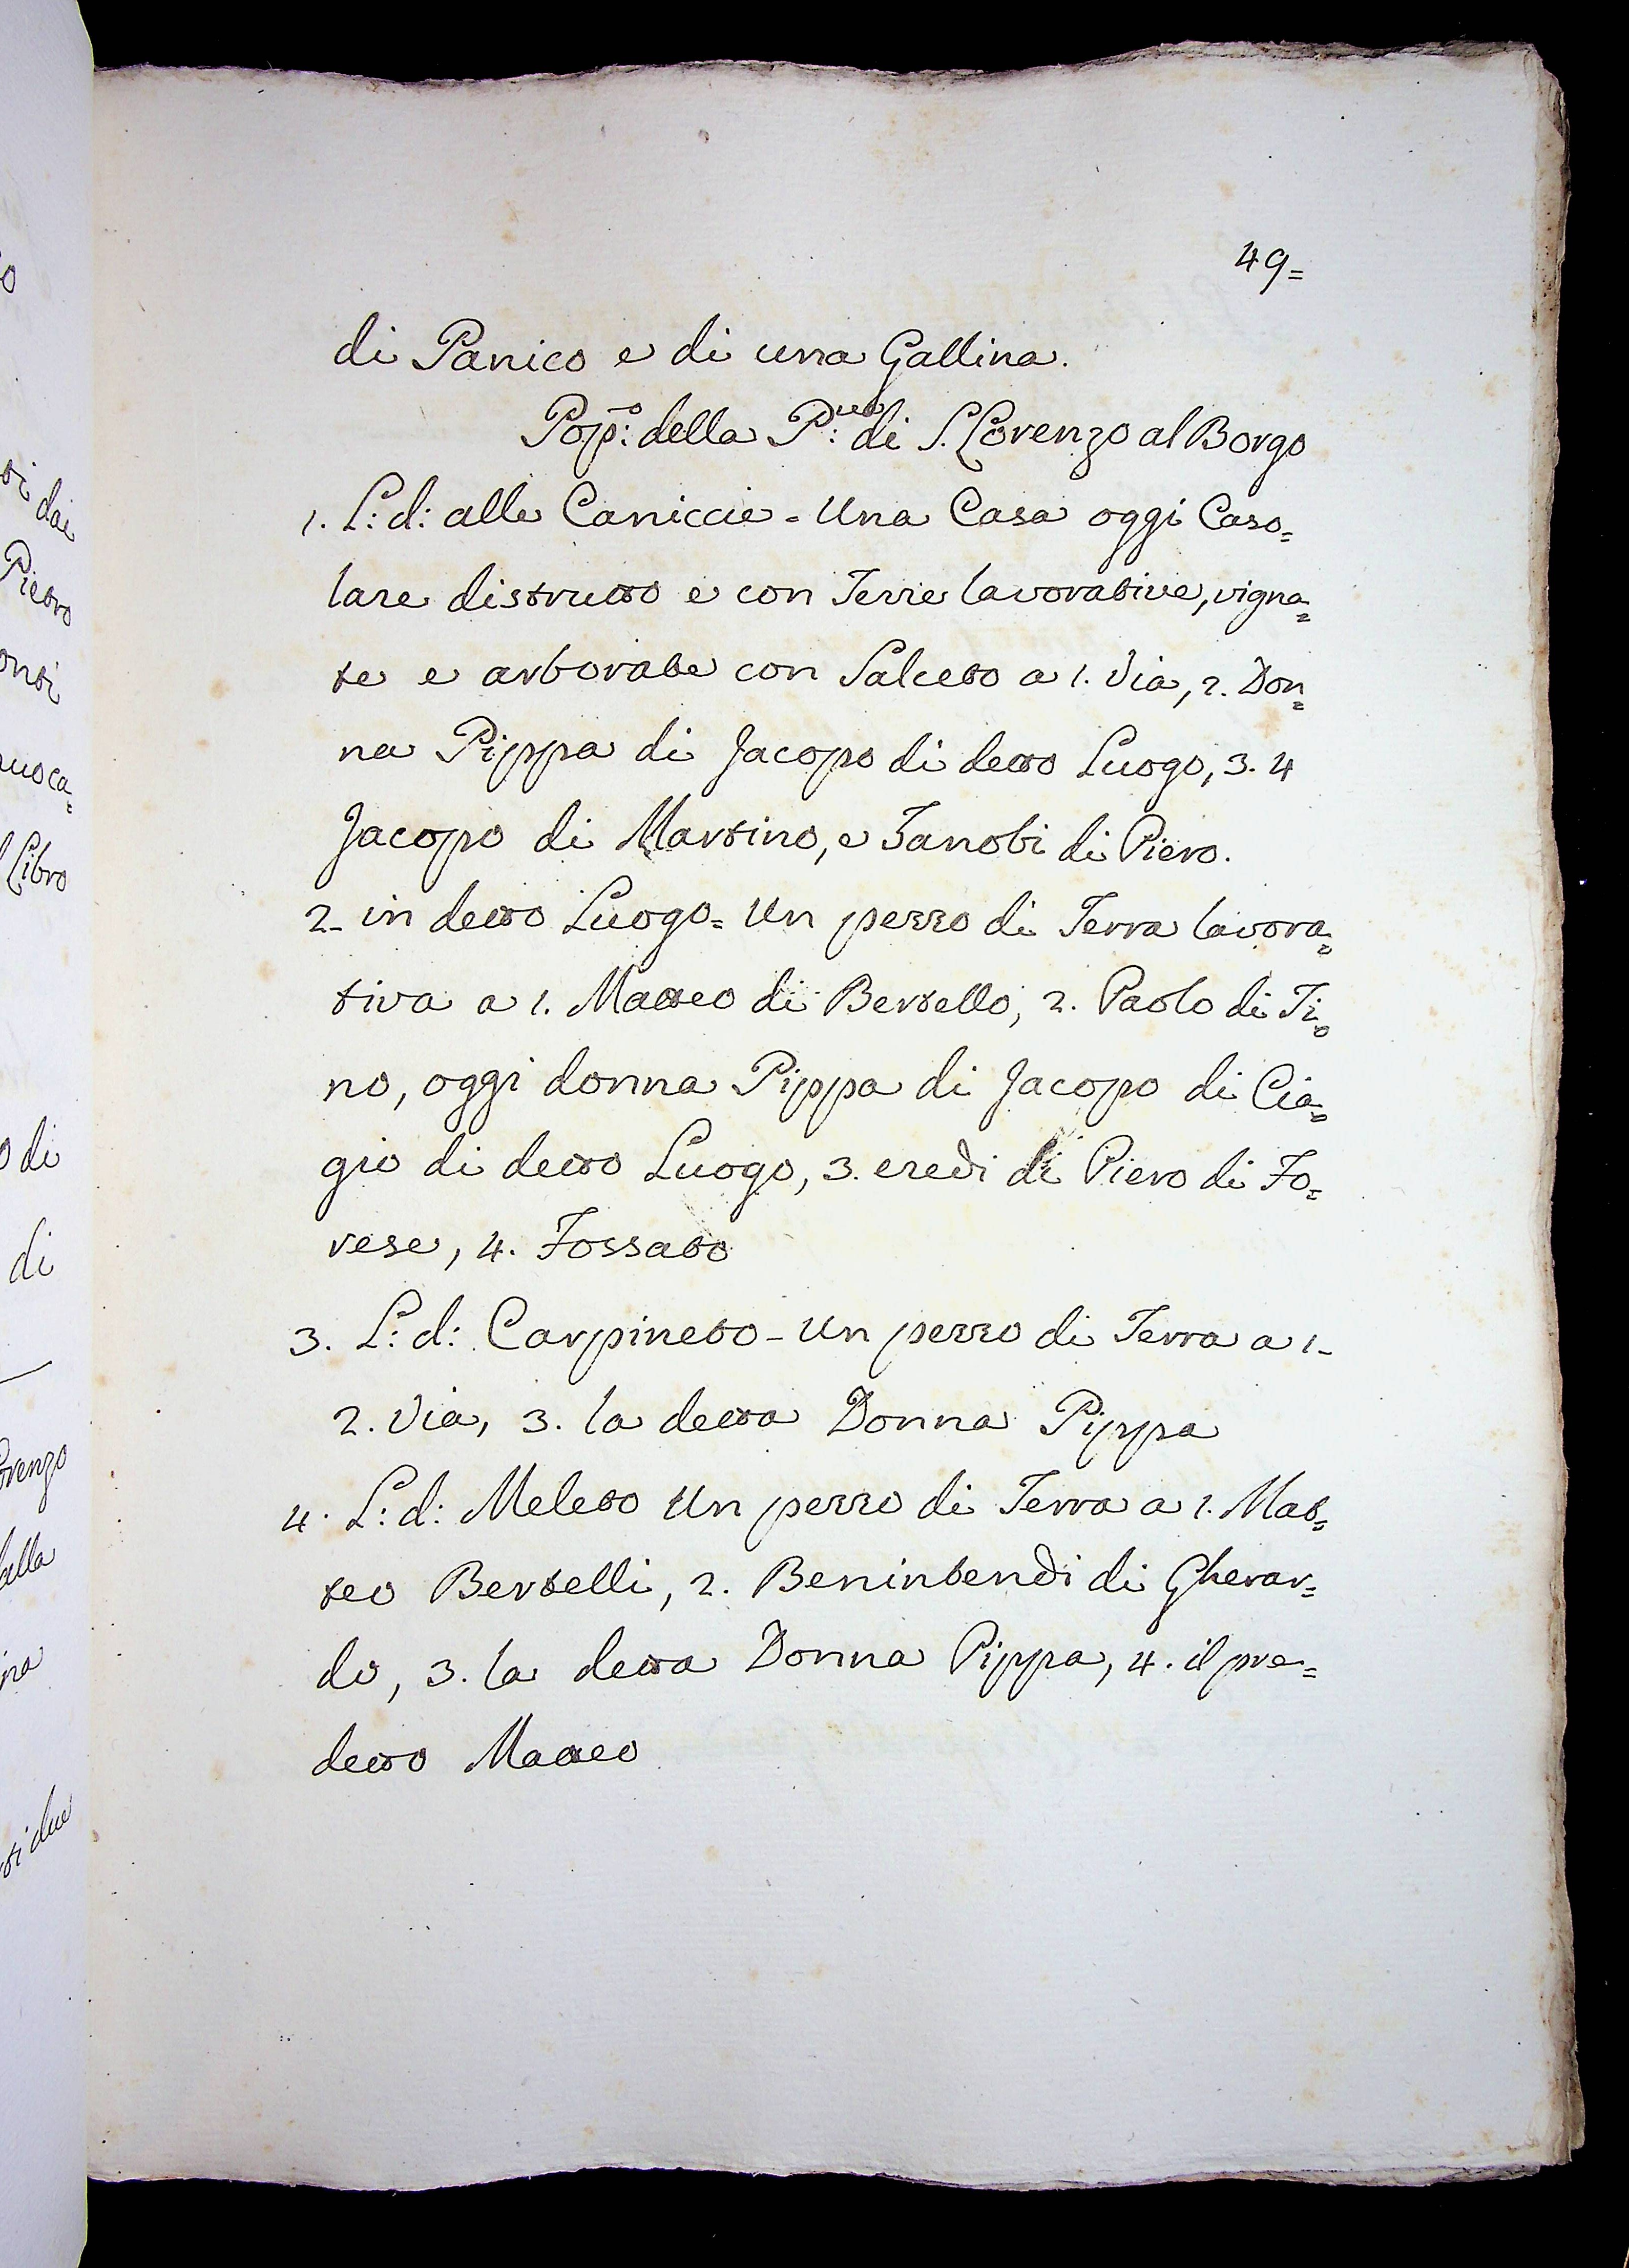 49=
di Panico e di una Gallina.
Pop:º della P:ve di S. Lorenzo al Borgo
1. L: d: alle Caniccie - Una Casa oggi Caso=
lare distrutto e con Terre lavorative, vigna=
te e arborate con Salceto a 1. Via, 2. Don=
na Pippa di Jacopo di detto Luogo, 3. 4
Jacopo di Martino, e Zanobi di Piero.
2- in detto Luogo = Un pezzo di Terra lavora=
tiva a 1. Matteo di Bertello, 2. Paolo di Ti=
no, oggi donna Pippa di Jacopo di Cia=
gio di detto Luogo, 3. eredi di Piero di Fo=
rese, 4. Fossato
3. L: d: Carpineto - Un pezzo di Terra a 1-
2. Via, 3. la detta Donna Pippa
4. L: d: Meleto Un pezzo di Terra a 1. Mat=
teo Bertelli, 2. Benintendi di Gherar=
do, 3. la detta Donna Pippa, 4. il pre=
detto Matteo
dai
Pietro
Libro
di
di
due